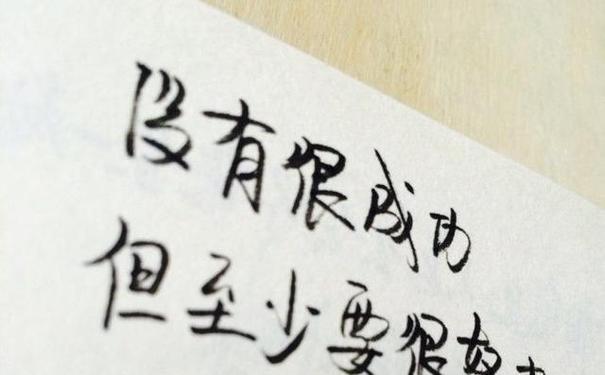 没有很成功
但至少要很好